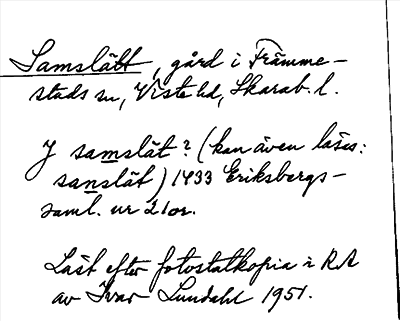 Samslätt, gård i Främme-
stads sn, Viste hd, Skarab. l.
J samslät? (kan även läses:
sanslät) 1433 Eriksbergs-
saml. nr 21or.
Läst efter fotostatkopia i RA
av Ivar Lundahl 1951.